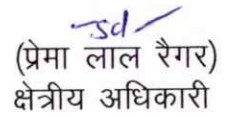 Sd/
(प्रेमा लाल रैगर)
क्षेत्रीय अधिकारी